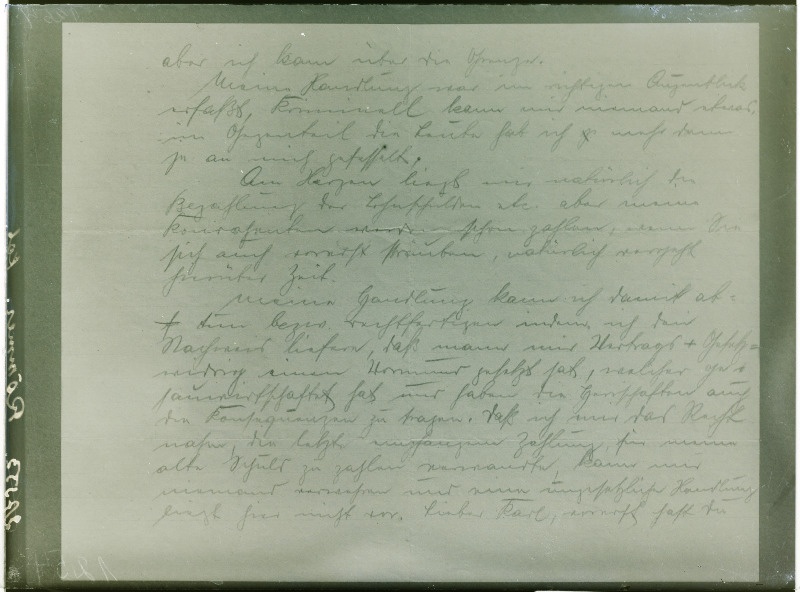 aber ich kam über die Grenze.
Meine Handlung war im richtigen Augenblick
erfaßt, Kriminell kann mir niemand etwas,
im Gegenteil die Leute hab ich mehr denn
je an mich gefesselt.
Am Herzen liegt mir natürlich die
Bezahlung der Lohnschulden etc. aber meine
schon zahlen, wenn Sie
sich auch vorerst sträuben, natürlich vergeht
hierüber Zeit.
Meine Handlung kann ich damit ab-
tun bezw. rechtfertigen indem ich den
Nachweis liefere, daß mann mir Vertrags + Gesetz-
widrig einen Vormund gesetzt hat, welcher
sauwirtschaftet hat und haben die Herrschaften auch
die Konsequenzen zu tragen. Daß ich mir das Recht
nahm, die letzte empfangene Zahlung, für meine
alte Schuld zu zahlen verwandte, kann mir
niemand verwehren und eine ungesetzliche Handlung
liegt hier nicht vor. Lieber Karl, vorerst hast Du